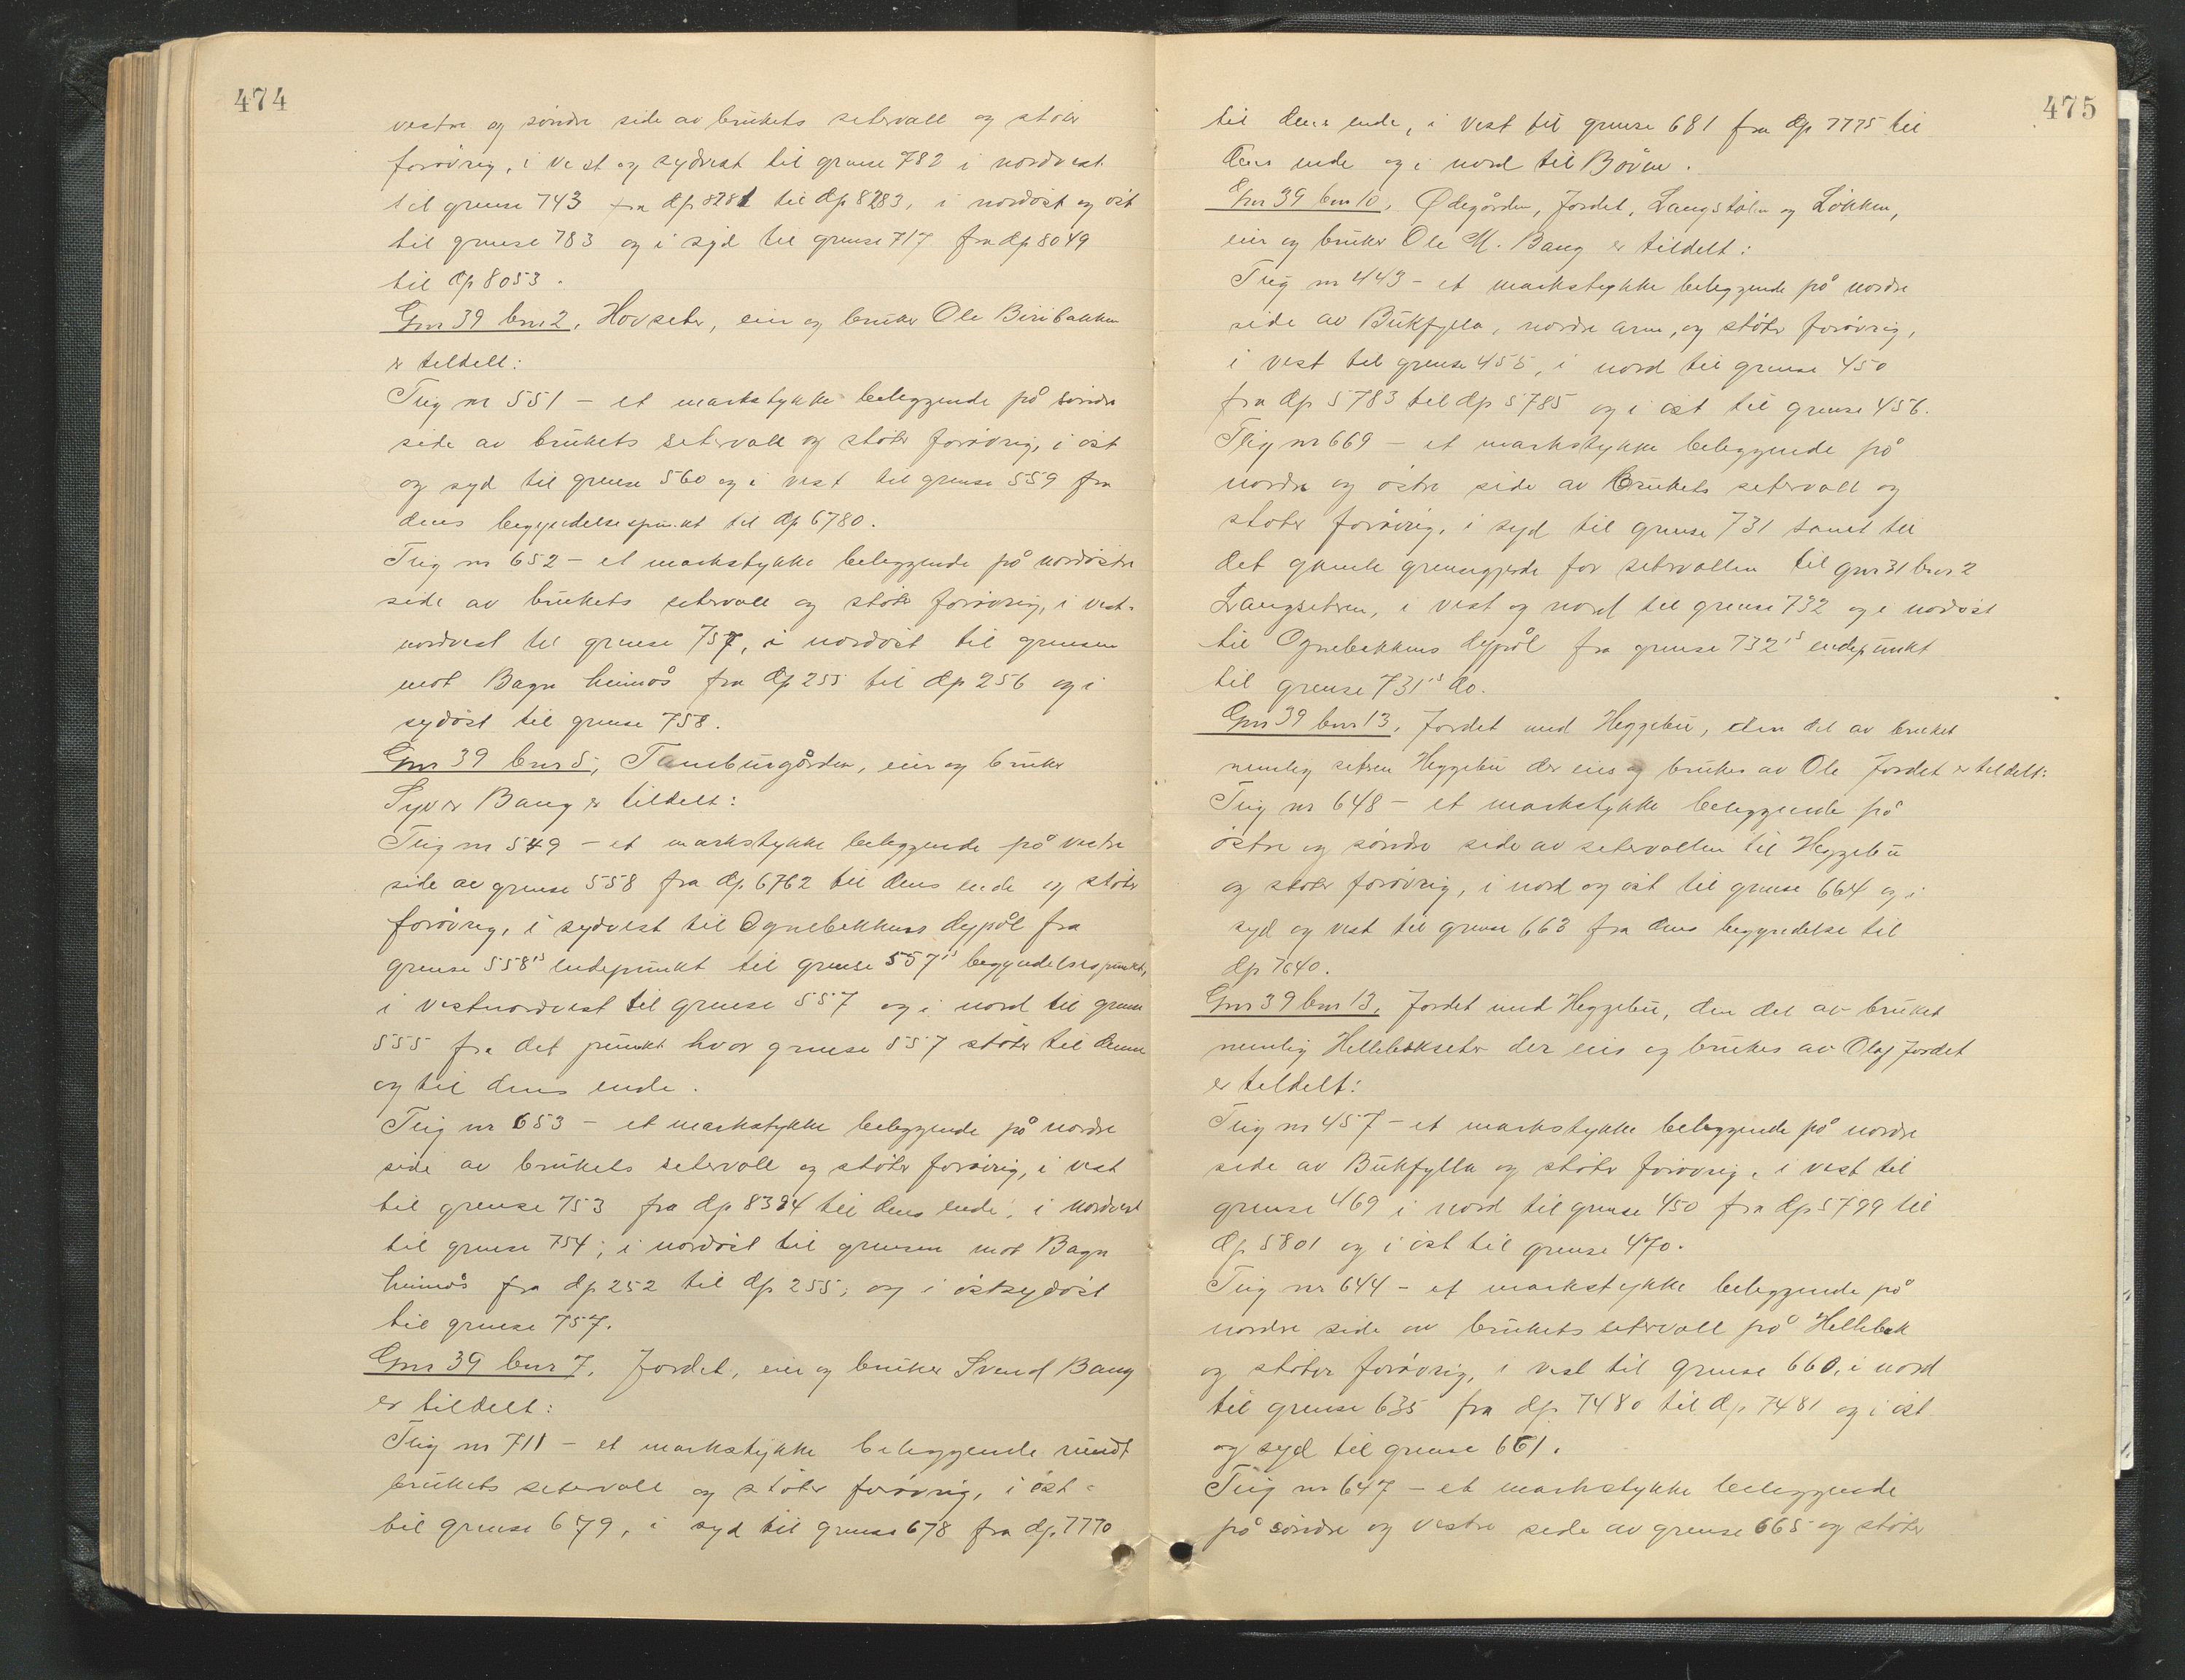 474
vestre og söndre side av brukets setervall og stöter
forövrig, i vest og sydvest til grense 782 i nordvest
til grense 743 fra dp 8281 til dp 8283, i nordöst og öst
til grense 783 og i syd til grense 717 fra dp 8049
til dp 8053.
Gnr 39 bnr 2, Hovseter, eier og bruker Ole Biribakken
er tildelt:
Teig nr 551 - et markstykke beliggende på söndre
side av brukets setervall og stöter forövrig, i öst
og syd til grense 560 og i vest til grense 559 fra
dens begyndelsespunkt til dp 6780.
Teig nr 652 - et markstykke beliggende på nordöstre
side av brukets setervall og stöter forövrig, i vest-
nordvest til grense 757, i nordöst til grensen
mot Bagn heimås fra dp 255 til dp 256 og i
sydöst til grense 758.
Gnr 39 bnr 5, Tamburgården, eier og bruker
Syver Bang er tildelt:
Teig nr 549 - et markstykke beliggende på vestre
side av grense 558 fra dp 6762 til dens ende og stöter
forövrig, i sydvest til Ognebekkens dypål fra
grense 558's endepunkt til grense 557's begyndelsespunkt,
i vestnordvest til grense 557 og i nord til grense
555 fra det punkt hvor grense 557 stöter til denne
og til dens ende.
Teig nr 653 - et markstykke beliggende på nordre
side av brukets setervall og stöter forövrig, i vest
til grense 753 fra dp 8394 til dens ende, i nordvest
til grense 754; i nordöst til grensen mot Bagn
heimås fra dp 252 til dp 255; og i östsydöst
til grense 757.
Gnr 39 bnr 7, Jordet, eier og bruker Svend Bang
er tildelt:
Teig nr 711 - et markstykke beliggende rundt
brukets setervall og stöter forövrig, i öst
til grense 679, i syd til grense 678 fra dp. 7770
475
til dens ende, i vest til grense 681 fra dp 7775 til
dens ende og i nord til Bövre.
Gnr 39 bnr 10, Ødegården, Jordet, Langstölen og Lökken,
eier og bruker Ole M. Bang er tildelt:
Teig nr 443 - et markstykke beliggende på nordre
side av Bukfylla, nordre arm, og stöter forövrig,
i vest til grense 455, i nord til grense 450
fra dp 5783 til dp 5785 og i öst til grense 456.
Teig nr 669 - et markstykke beliggende på
nordre og östre side av brukets setervall og
stöter forövrig, i syd til grense 731 samt til
det gamle grensegjerde for setervollen til gnr 31 bnr 2
Langseteren, i vest og nord til grense 732 og i nordöst
til Ognebekkens dypål fra grense 732's endepunkt
til grense 731's do.
Gnr 39 bnr 13, Jordet med Heggebu, den del av bruket
nemlig seteren Heggebu der eies og brukes av Ole Jordet er tildelt:
Teig nr 648 - et markstykke beliggende på
östre og söndre side av setervollen til Heggebu
og stöter forövrig, i nord og öst til grense 664 og i
syd og vest til grense 663 fra dens begyndelse til
dp 7640.
Gnr 39 bnr 13, Jordet med Heggebu, den del av bruket
nemlig Hellebekseter der eies og brukes av Olaf Jordet
er tildelt:
Teig nr 457 - et markstykke beliggende på nordre
side av Bukfylla og stöter forövrig, i vest til
grense 469 i nord til grense 450 fra dp 5799 til
dp 5801 og i öst til grense 470.
Teig nr 644 - et markstykke beliggende på
nordre side av brukets setervoll på Hellebek
og stöter forövrig, i vest til grense 660, i nord
til grense 635 fra dp. 7480 til dp. 7481 og i öst
og syd til grense 661.
Teig nr 647 - et markstykke beliggende
på söndre og vestre side av grense 665 og stöter